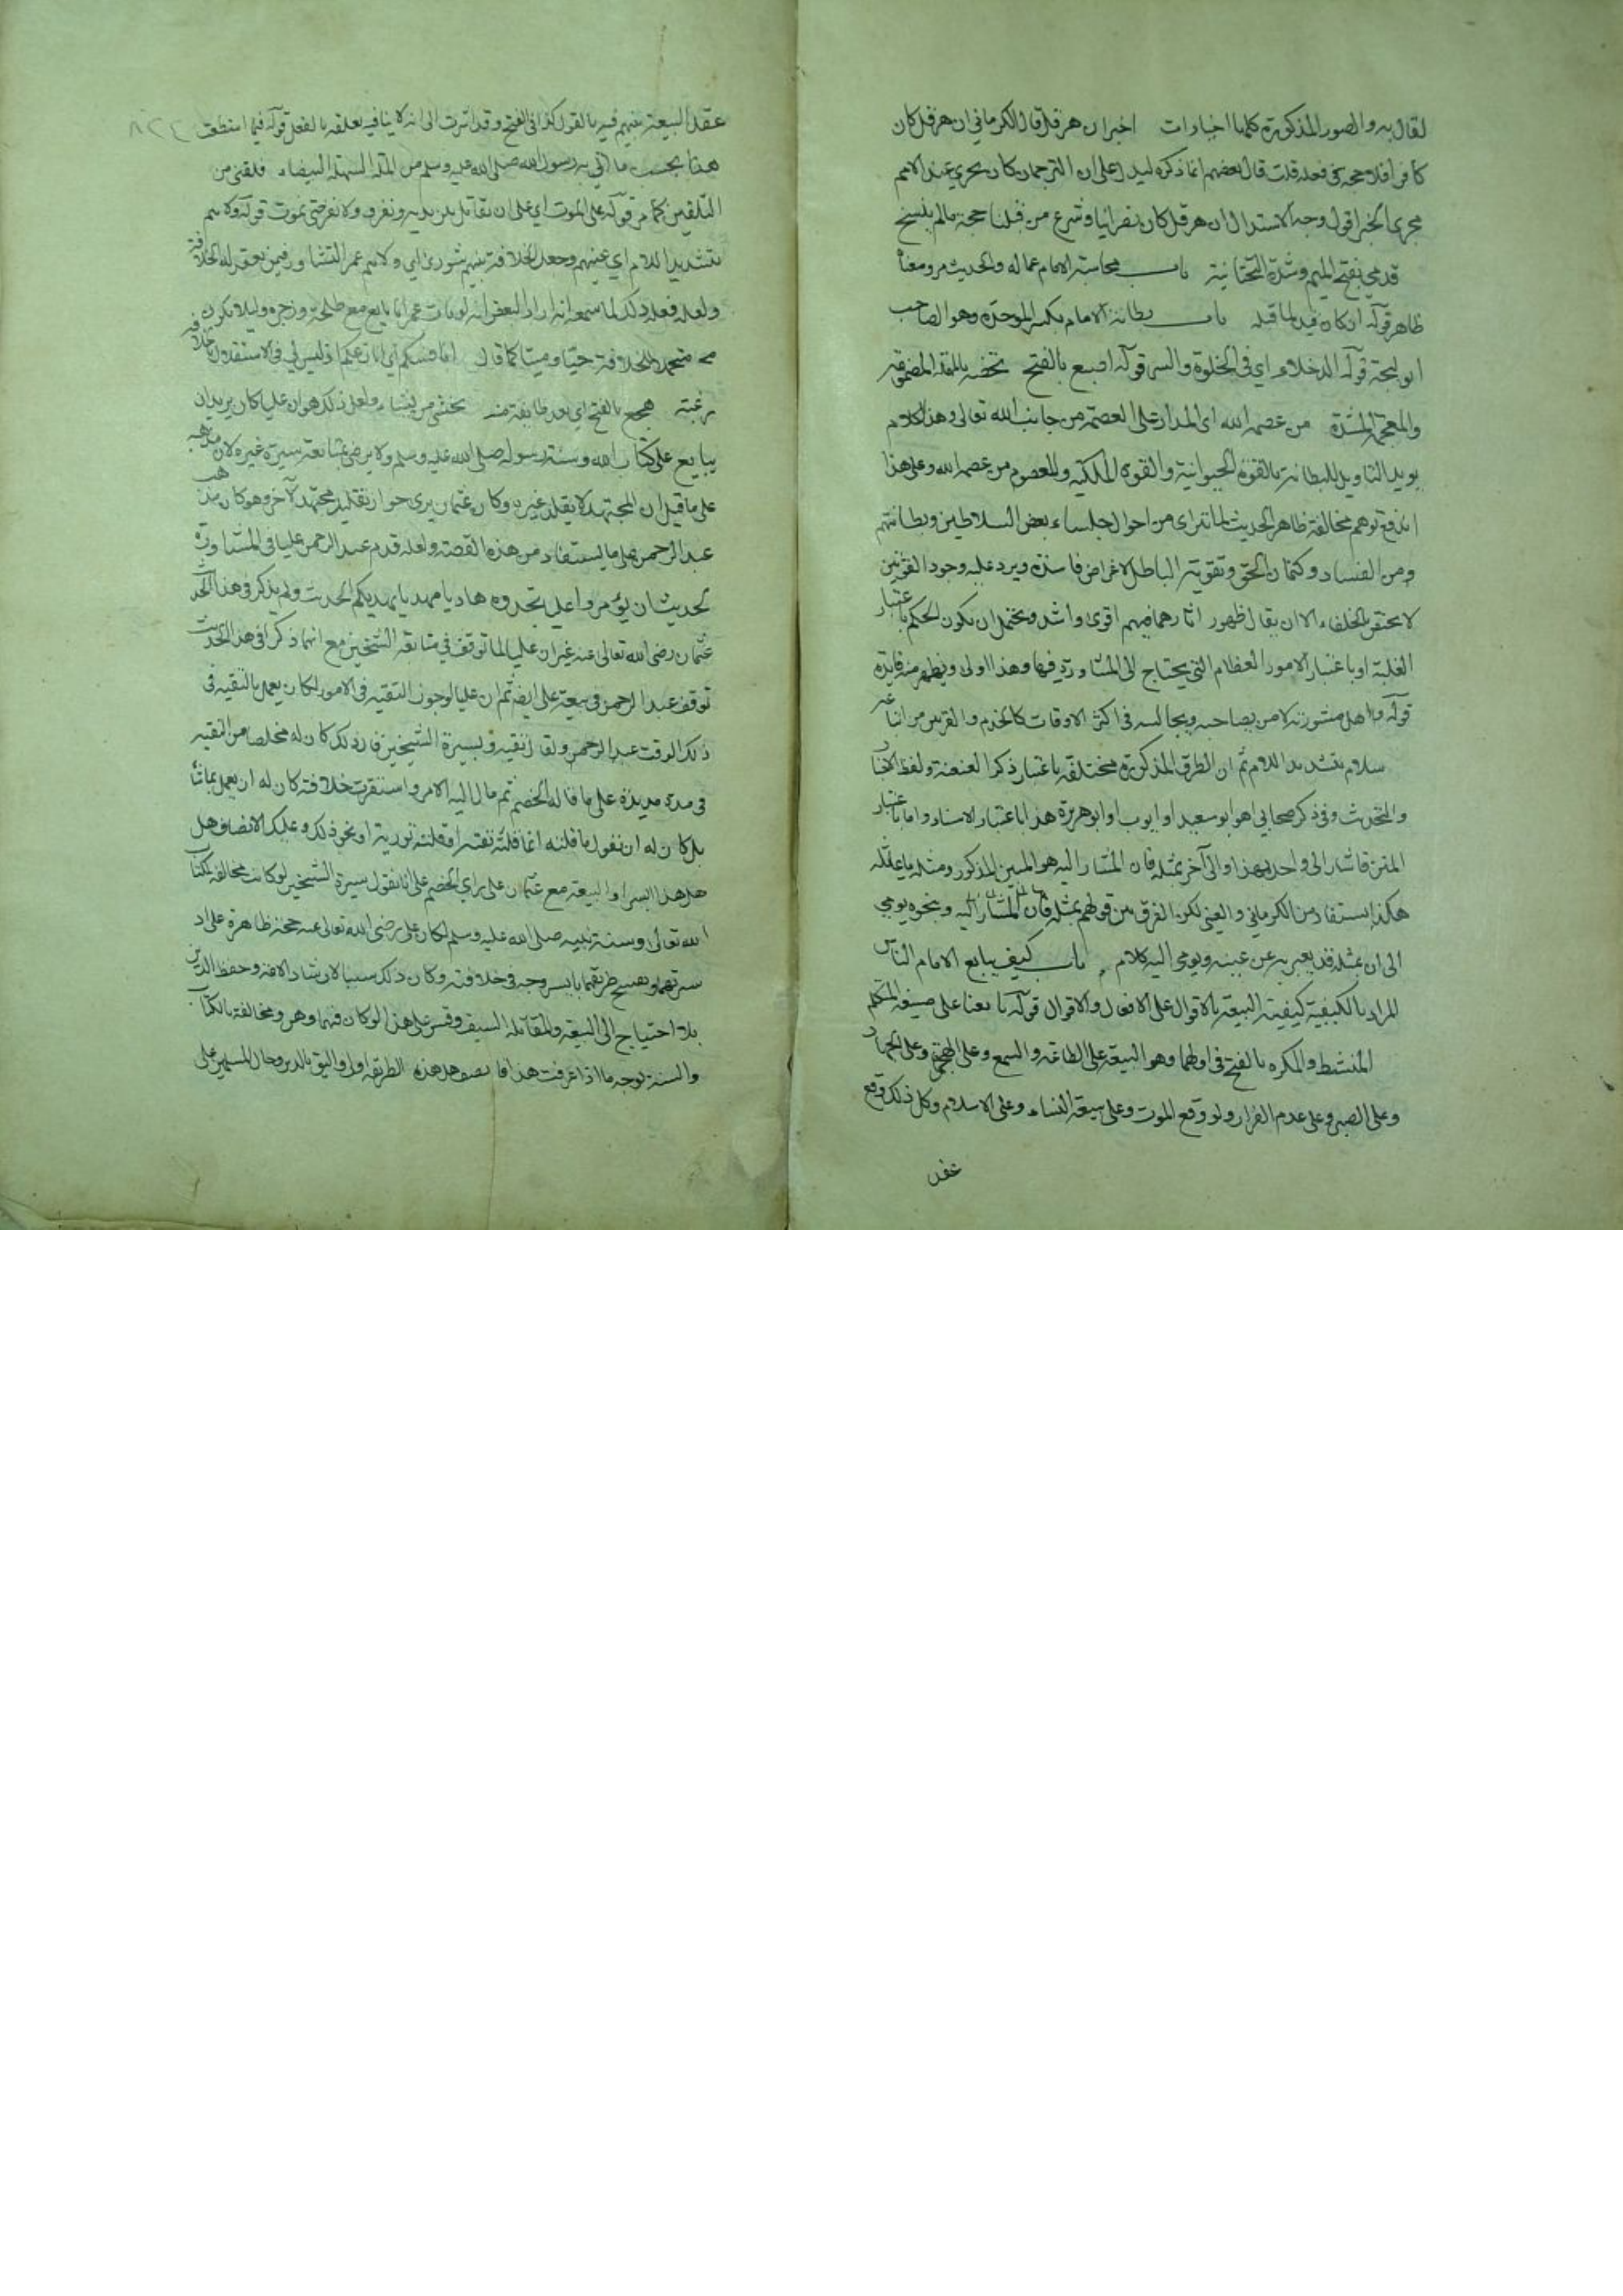 لقال به والصور المذكورة كلها اخبارات اخبر ان هرقل قال الكرماني ان هرقل كان
كافرا فلا حجة في فعله قلت قال بعضهم انما ذكره ليدل على ان الترجمان كان يجري عند الامم
مجرى الخبر اقول وجه الاستدلال ان هرقل كان نصرانيا وشرع من قبلنا حجة ما لم ينسخ
قدمي بفتح الميم وشدة التحتانية باب محاسبة الامام عماله والحديث مر ومعنا
ظاهر قوله ان كان قيد لما قبله باب بطانة الامام بكسر الموحدة وهو الصاحب
الوليجة قوله الدخلاء اي في الخلوة والسر قوله اصبع بالفتح تحضه بالمهملة المضمومة
والمعجمة المشددة من عصم الله اي المدار على العصمة من جانب الله تعالى وهذا الكلام
يويد التاويل للبطانة بالقوة الحيوانية والقوة الملكية والمعصوم من عصم الله وعلى هذا
اندفع توهم مخالفة ظاهر الحديث لما تترى من احوال جلساء بعض السلاطين وبطانتهم
ومن الفساد وكتمان الحق وتقوية الباطل لاغراض فاسدة ويرد عليه وجود القوتين
لا يختص بالخلفاء الا ان يقال ظهور اثارهما فيهم اقوى واشد ويحتمل ان يكون الحكم باعتبار
الغلبة او باعتبار الامور العظام التي يحتاج الى المشاورة فيها وهذا اولى ويظهر منه فايدة
قوله واهل مشورته لا من يصاحبه ويجالسه في اكثر الاوقات كالخدم والقرين من ابنا غير
سلام بتشديد اللام ثم ان الطرق المذكورة مختلفة باعتبار ذكر العنعنة ولفظ الاخبار
والتحديث وفي ذكر صحابي اهو ابو سعيد او ابو ايوب او ابو هريرة هذا باعتبار الاسناد واما باعتبار
المتن فاشار الى واحد بهذا والى آخر بمثله فان المشار اليه هو المبين المذكور ومثله ما يماثله
هكذا يستفاد من الكرماني والعيني لكن الفرق بين قولهم بمثله فان المشار اليه وبنحوه يومي
الى ان بمثله قد يعبر به عن عينه ويومي اليه كلام باب كيف يبايع الامام الناس
المراد بالكيفية كيفية البيعة بالاقوال على الافعال والاقوال قوله بايعنا على صيغة المتكلم
المنشط والمكره بالفتح في اولهما وهو البيعة على الطاعة والسمع وعلى الهجرة وعلى الجهاد
وعلى الصبر وعلى عدم الفرار ولو وقع الموت وعلى بيعة النساء وعلى الاسلام وكل ذلك وقع
عقد
عقد البيعة بينهم فيه بالقول كذا في الفتح وقد اشرت الى انه لا ينافيه تعلقه بالفعل قوله فيما استطعت
هذا بحسب ما اتي به رسول الله صلى الله عليه وسلم من الملة السهلة البيضاء فلقنني من
التلقين كما مر قوله على الموت اي على ان نقاتل بين يديه ونفرق ولا نفر حتى نموت قوله ولاهم
بتشديد اللام اي عينهم وجعل الخلافة بينهم شورى اي ولاهم عمر التشاور فيمن يعقد له الخلافة
ولعله فعل ذلك لما سمعه انه اراد البعض انه لو مات عمر انا بايع مع طلحة وزجره وليلا يكون
متحملا للخلافة حيا وميتا كما قال انافسكم اي انازعكم اذ ليس لي في الاستقلال بالخلافة
رغبة هجع بالفتح اي بعد طايفة منه يخشى من شيئا ولعل ذلك هو ان عليا كان يريد ان
يبايع على كتاب الله وسنة رسوله صلى الله عليه وسلم ولا يرضى بمتابعة سيرة غيره لان مذهبه
على ما قيل ان المجتهد لا يقلد غيره وكان عثمان يرى جواز تقليد مجتهد لآخر وهو كان مذهب
عبد الرحمن على ما يستفاد من هذه القصة ولعله قدم عبد الرحمن عليا في المشاورة
لحديث ان تؤمروا عليا تجدوه هاديا مهديا يهديكم الحديث ولم يذكر في هذا الحديث
عثمان رضي الله تعالى عنه غير ان عليا لما توقف في متابعة الشيخين مع انهما ذكرا في هذا الحديث
توقف عبد الرحمن في بيعة علي ايضا ثم ان عليا لو جوز التقية في الامور لكان يعمل بالتقية في
ذلك الوقت عبد الرحمن ولقال تقية وبسيرة الشيخين فان ذلك كان له مخلصا من التقية
في مدة مديدة على ما قاله الخصم ثم ما ال اليه الامر واستقرت خلافته كان له ان يعمل بما شا
بل كان له ان يقول ما قلته انما قلته تقية او قلته تورية او نحو ذلك وعليك الانصاف هل
هل هذا ايسر او البيعة مع عثمان على راي الخصم على انا نقول سيرة الشيخين لو كانت مخالفة لكتاب
الله تعالى وسنة نبيه صلى الله عليه وسلم لكان علي رضي الله تعالى عنه حجة ظاهرة على رد
سيرتهما وتقبيح طريقهما بايسر وجه في خلافته وكان ذلك سببا لارشاد الامة وحفظ الدين
بلا احتياج الى البيعة والمقاتلة السيف وقس على هذا لو كان فيهما وهن ومخالفة بالكتاب
والسنة لوجه ما اذا عرفت هذا فانصف هل هذه الطريقة اولى واليق بالدين وحال المسلمين على